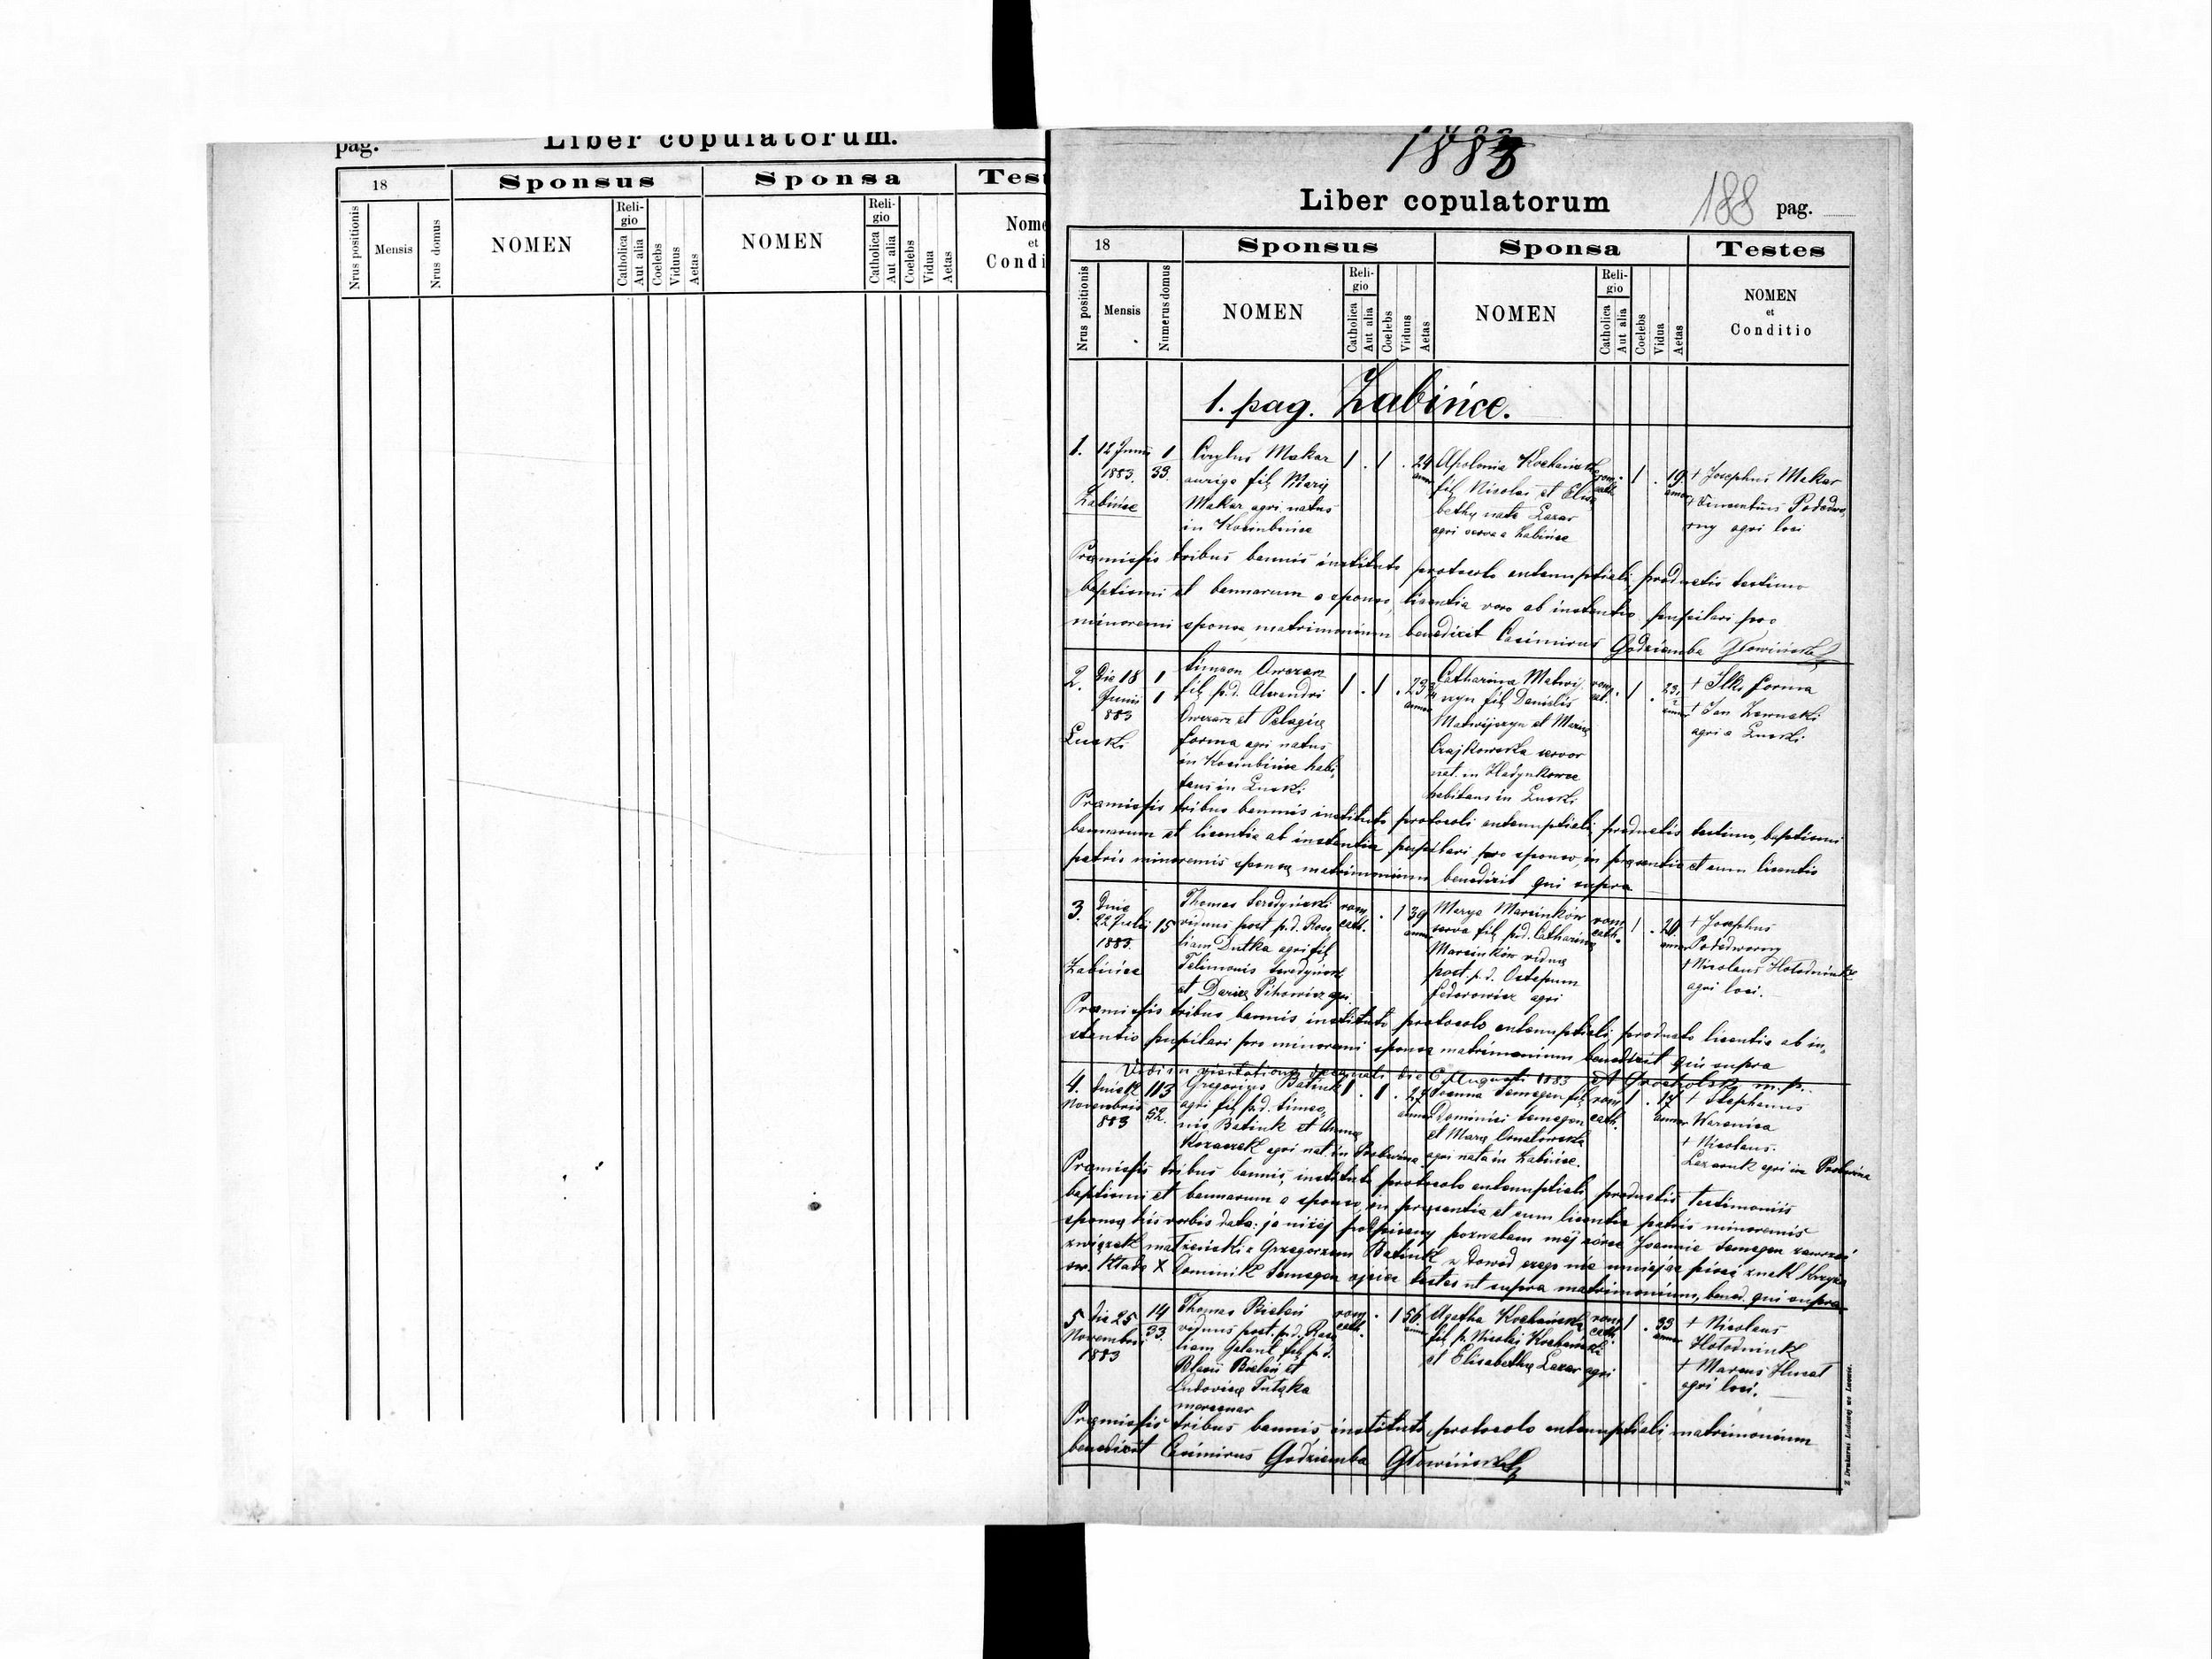 pag.
Liber copulatorum.
18
Sponsus
Sponsa
Test
Nrus positionis
Mensis
Nrus domus
NOMEN
Religio
Catholica
Aut alia
Coelebs
Viduus
Aetas
NOMEN
Religio
Catholica
Aut alia
Coelebs
Vidua
Aetas
Nome
et
Condi
1883
Liber copulatorum
188 pag.
18
Sponsus
Sponsa
Testes
Nrus positionis
Mensis
Numerus domus
NOMEN
Religio
Catholica
Aut alia
Coelebs
Viduus
Aetas
NOMEN
Religio
Catholica
Aut alia
Coelebs
Vidua
Aetas
NOMEN
et
Conditio
1. pag. Żabińce.
1.
12 Junii
1883.
Żabińce
1
33.
Cyrylus Makar
auriga fil Mary
Makar agri natus
in Kociubińce
1 . 1 . 24
Apolonia Kochańska
fil Nicolai et Elisa
betha nata Lazar
agri serva a Żabińce
rom. cath. 1 . 19
† Josephus Makar
† Vincentius Podedwo,
rny agri loci
Præmissis tribus bannis instituto protocolo antenuptiali, productis testimo
baptismi et bannorum a sponso, licentia vero ab instantia pupilari pro
minorenni sponsa matrimonium benedixit Casimirus Godziemba Głowiński
2.
Die 18
Junii
883
Łuczki
1
1
Simeon Owczar
fil p.d. Alexandri
Owczarz et Pelagiæ
Forma agri natus
in Kociubińce habi,
tans in
1 . 1 . 23
Catharina Matwij
czyn fil Danielis
Matwijczyn et Maria
Czajkowska servor
nat. in Hadynkowce
habitans in
rom. cat. 1 . 23
† Ilko Forma
† Jan
agri a
Præmissis tribus bannis instituto protocoli antenuptiali productis testimo, baptismi
bannorum et licentia ab instantia pupilari pro sponso, in præsentia et cum licentia
patris minorennis sponsæ matrimonium benedixit qui supra
3.
Dnie
22 Julii
1883.
Żabińce
15
Thomas Seredyński
viduus post p.d. Rosa
liam Dutka agri fil
Filimonis Seredyński
et Daria Pihowicz agri
rom. cath. . 1 39
Marya Marcinków
serva fil p.d. Catharina
Marcinków vidua
post. p.d. Ostapum
Fedorowicz agri
rom. cath. 1 . 20
† Josephus
Podedworny
† Nicolaus Hołodniuk
agri loci.
Præmissis tribus bannis instituto protocolo antenuptiali, producto licentia ab in,
stantio pupilari pro minorenni sponsa matrimonium benedixit qui supra
Vidi in visitatione decanali die 6 Augusti 1883 m.p.
4.
dnia 12
Novembris
883
113
52.
Gregorius Batiuk
agri fil p.d. Simeo,
nis Batiuk et Anna
Kozaczek agri nat. in Probużna
1 . 1 . 27
Joanna Semegen fil
Dominici Semegen
et Mary
agri nata in Żabińce.
rom cath. 1 . 17
† Stephanus
Waronica
† Nicolaus.
Lazaruk agri in Probużna
Præmissis tribus bannis, instituto protocolo antenuptiali, productis testimoniis
baptismi et bannorum a sponso, in præsentia et cum licentia patris minorennis
sponsæ his verbis data: ja niżej podpisany pozwalam mej córce Joannie Semegen zawrzeć
związek małżeński z Grzegorzem Batiuk na dowód czego nie umiejąc pisać znak krzyża
św. kładę X Dominik Semegen ojciec testes ut supra matrimonium, bened. qui supra
5
die 25
Novembris
1883
14
33.
Thomas Bieleń
viduus post. p.d. Rosa
liam Galant fil p.d.
Blasii Bieleń et
Ludovica Tutęka
mercenar
rom cath. . 1 56
Agatha Kochańska
fil p. Nicolai Kochański
et Elisabetha Lazar agri
rom cath. 1 . 33
† Nicolaus
Hołodniuk
† Marcus Husat
agri loci.
Præmissis tribus bannis, instituto protocolo antenuptiali matrimonium
benedixit Casimirus Godziemba Głowiński
Z Drukarni Ludowej we Lwowie.